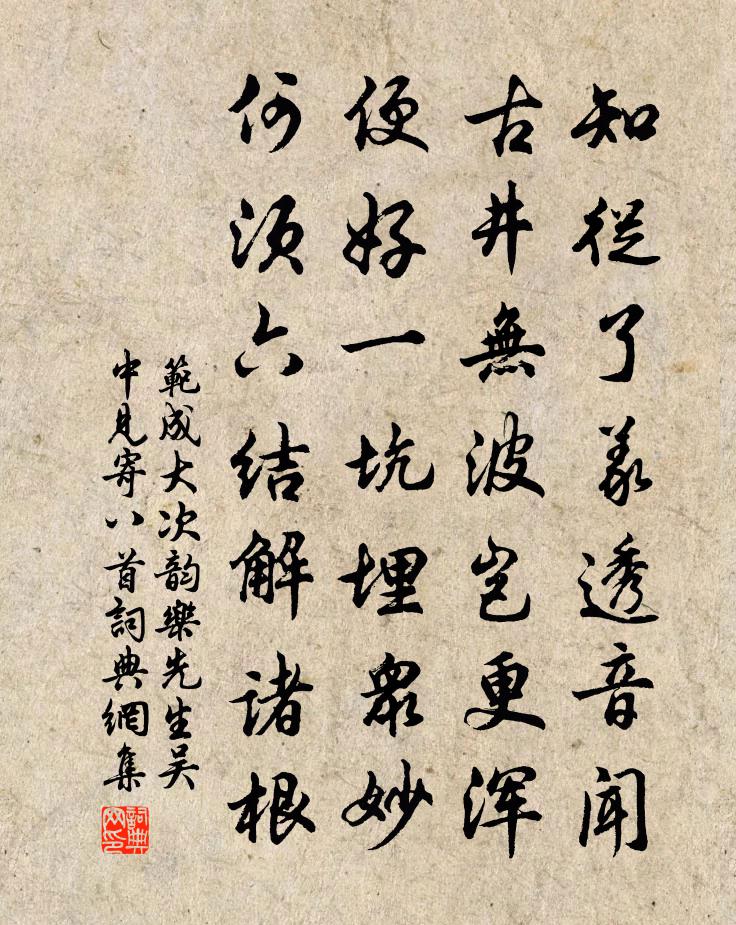 知從了義透音聞
古井無波豈更渾
便好一坑埋眾妙
何須六結解諸根
範成大次韵樂先生吴
中見寄八首詞典網集
詞典网印